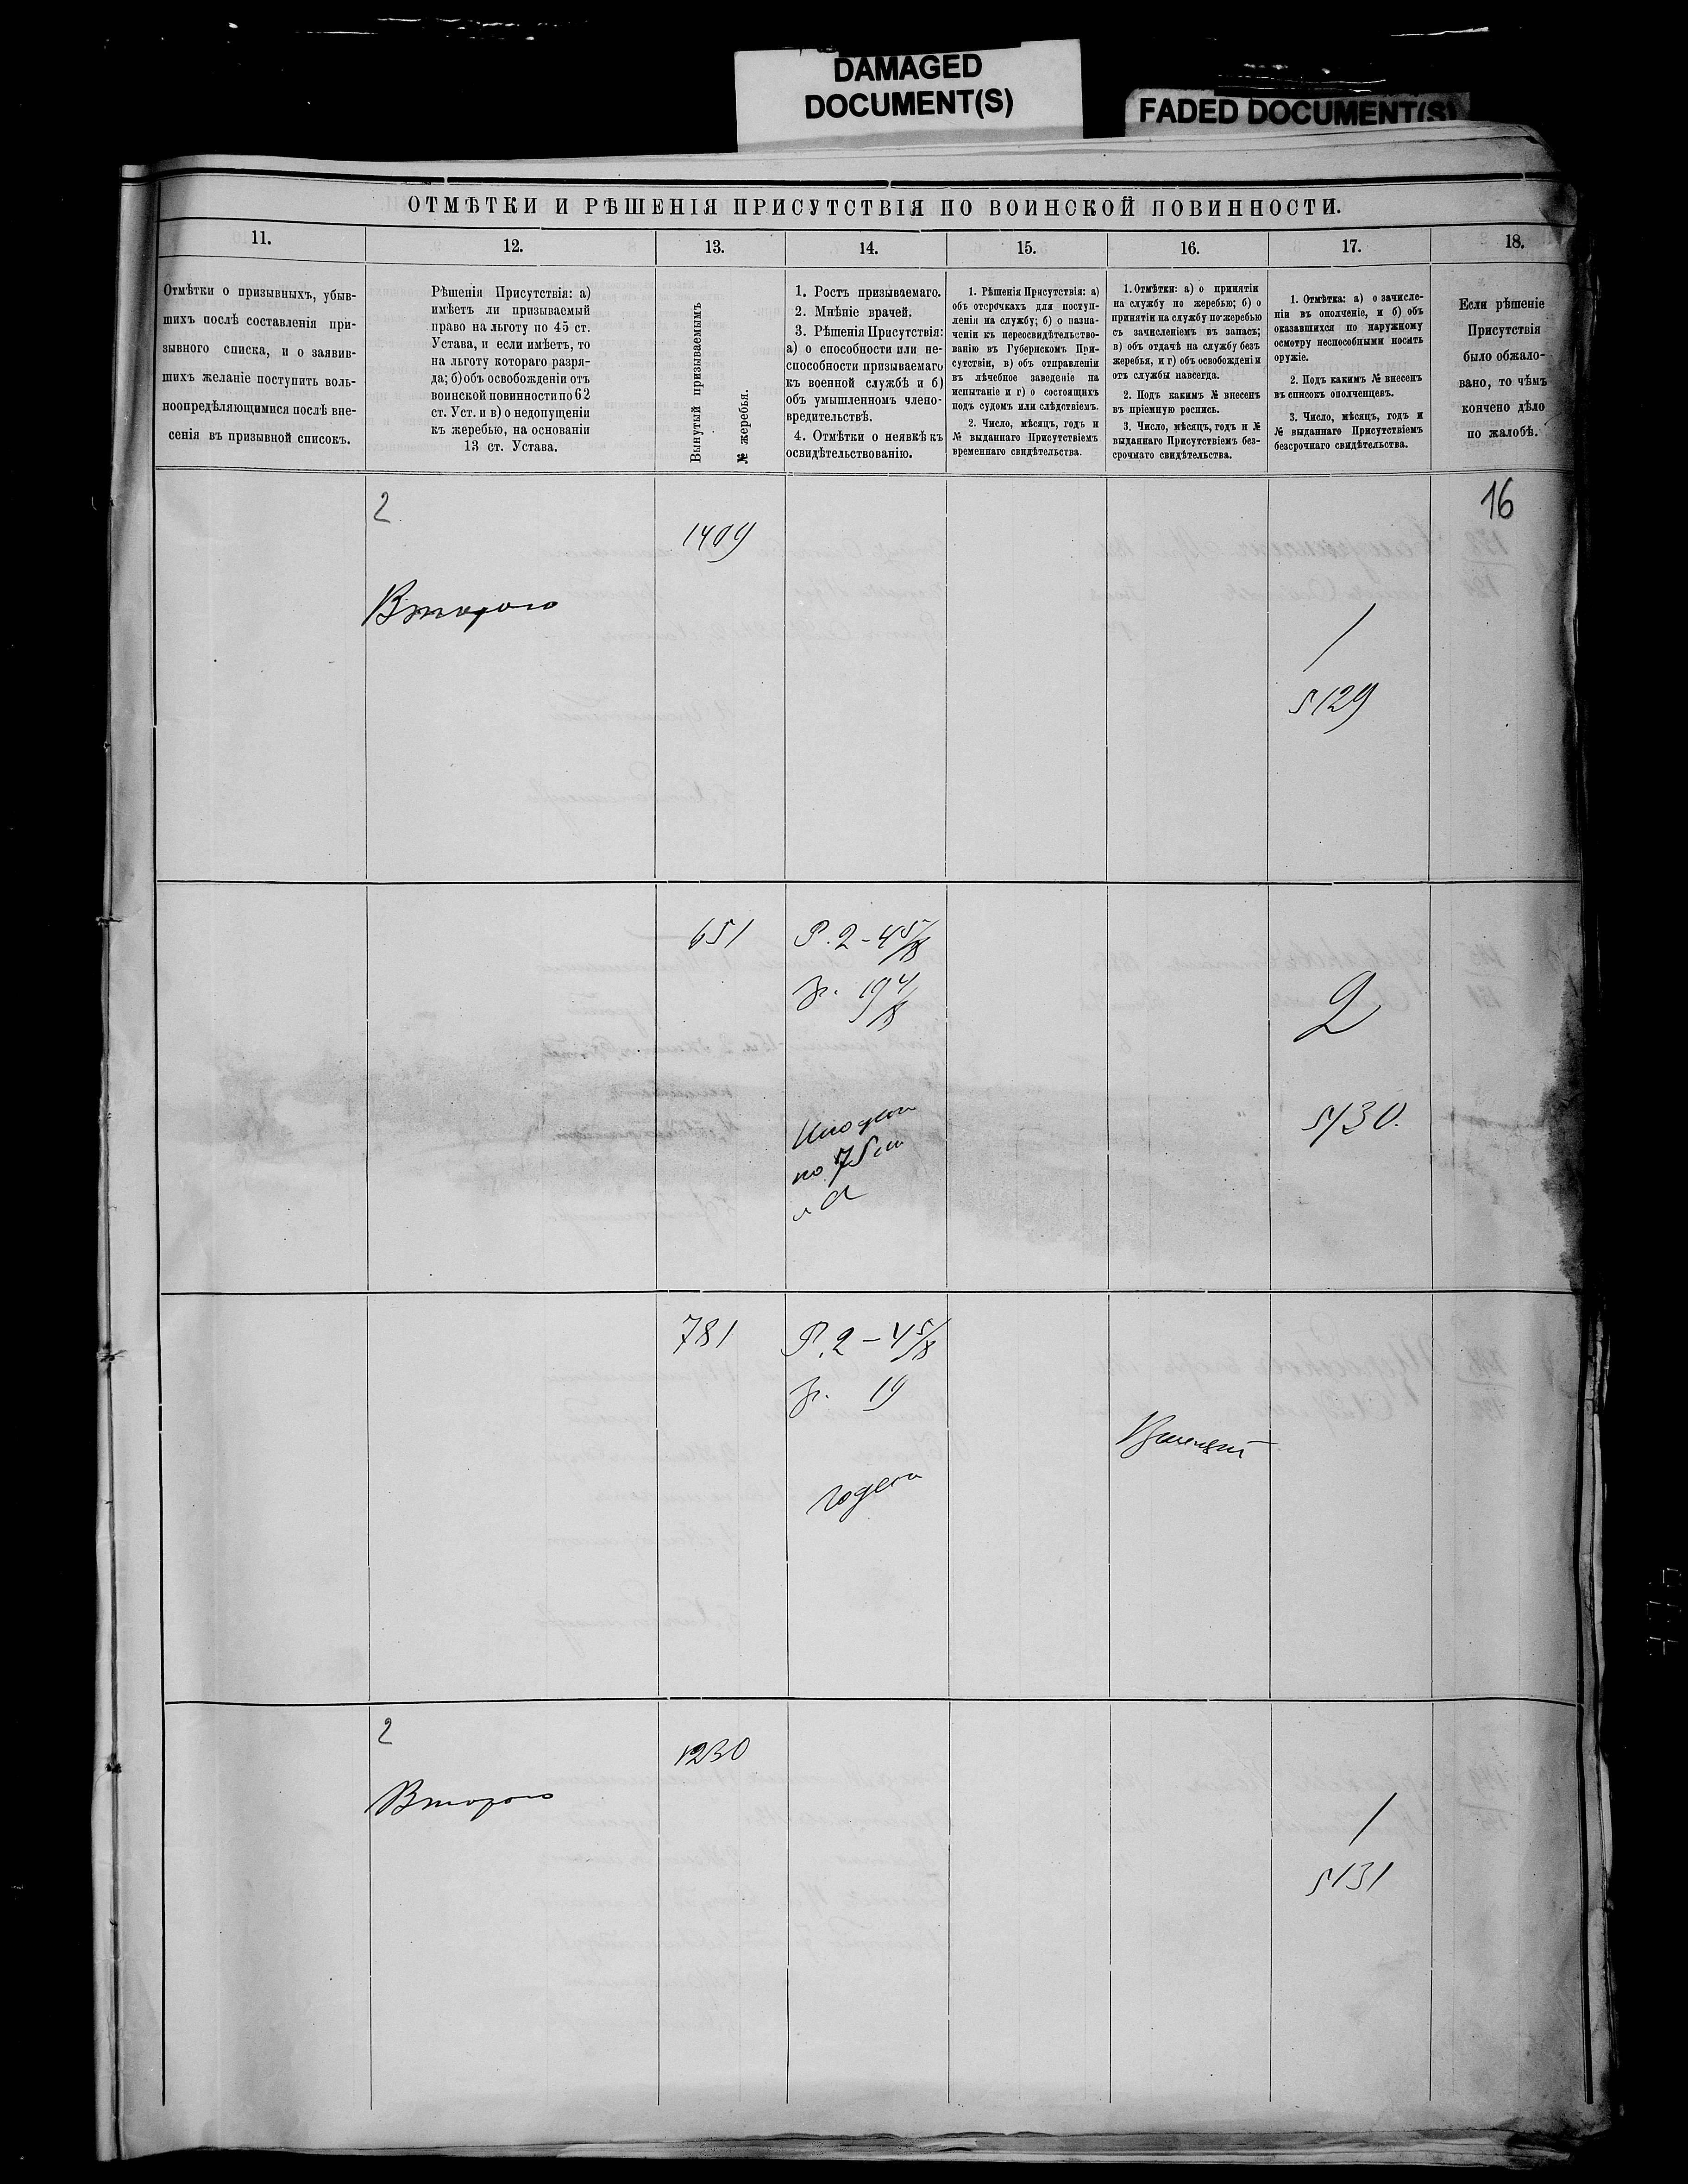 DAMAGED
DOCUMENT(S)
FADED DOCUMENT(S)
ОТМѢТКИ И РѢШЕНІЯ ПРИСУТСТВІЯ ПО ВОИНСКОЙ ПОВИННОСТИ.
11.
12.
13.
14.
15.
16.
17.
18.
Отмѣтки о призывныхъ, убыв-
шихъ послѣ составленія при-
зывного списка, и о заявив-
шихъ желаніе поступить воль-
ноопредѣляющимися послѣ вне-
сенія въ призывной списокъ.
Рѣшенія Присутствія: а)
имѣетъ ли призываемый
право на льготу по 45 ст.
Устава, и если имѣетъ, то
на льготу котораго разря-
да; б) объ освобожденіи отъ
воинской повинности по 62
ст. Уст. и в) о недопущеніи
къ жеребью, на основаніи
13 ст. Устава.
Вынутый призываемымъ
№ жеребья.
1. Ростъ призываемаго.
2. Мнѣніе врачей.
3. Рѣшенія Присутствія:
а) о способности или не-
способности призываемаго
къ военной службѣ и б)
объ умышленномъ члено-
вредительствѣ.
4. Отмѣтки о неявкѣ къ
освидѣтельствованію.
1. Рѣшенія Присутствія: а)
объ отсрочкахъ для поступ-
ленія на службу; б) о назна-
ченіи къ переосвидѣтельство-
ванію въ Губернскомъ При-
сутствіи, в) объ отправленіи
въ лѣчебное заведеніе на
испытаніе и г) о состоящихъ
подъ судомъ или слѣдствіемъ.
2. Число, мѣсяцъ, годъ и
№ выданнаго Присутствіемъ
временнаго свидѣтельства.
1. Отмѣтки: а) о принятіи
на службу по жеребью; б) о
принятіи на службу по жеребью
съ зачисленіемъ въ запасъ;
в) объ отдачѣ на службу безъ
жеребья, и г) объ освобожденіи
отъ службы навсегда.
2. Подъ какимъ № внесенъ
въ пріемную роспись.
3. Число, мѣсяцъ, годъ и №
выданнаго Присутствіемъ без-
срочнаго свидѣтельства.
1. Отмѣтка: а) о зачисле-
ніи въ ополченіе, и б) объ
оказавшихся по наружному
осмотру неспособными носить
оружіе.
2. Подъ какимъ № внесенъ
въ списокъ ополченцевъ.
3. Число, мѣсяцъ, годъ и
№ выданнаго Присутствіемъ
безсрочнаго свидѣтельства.
Если рѣшеніе
Присутствія
было обжало-
вано, то чѣмъ
кончено дѣло
по жалобѣ.
16
2
1409
Второго
1
5129
651
Р. 2 - 4 5/8
Гр. 19 4/8
2
по 75 ст
5130.
781
Р. 2 - 4 5/8
Гр. 19
годенъ
2
1230
Второго
1
5131